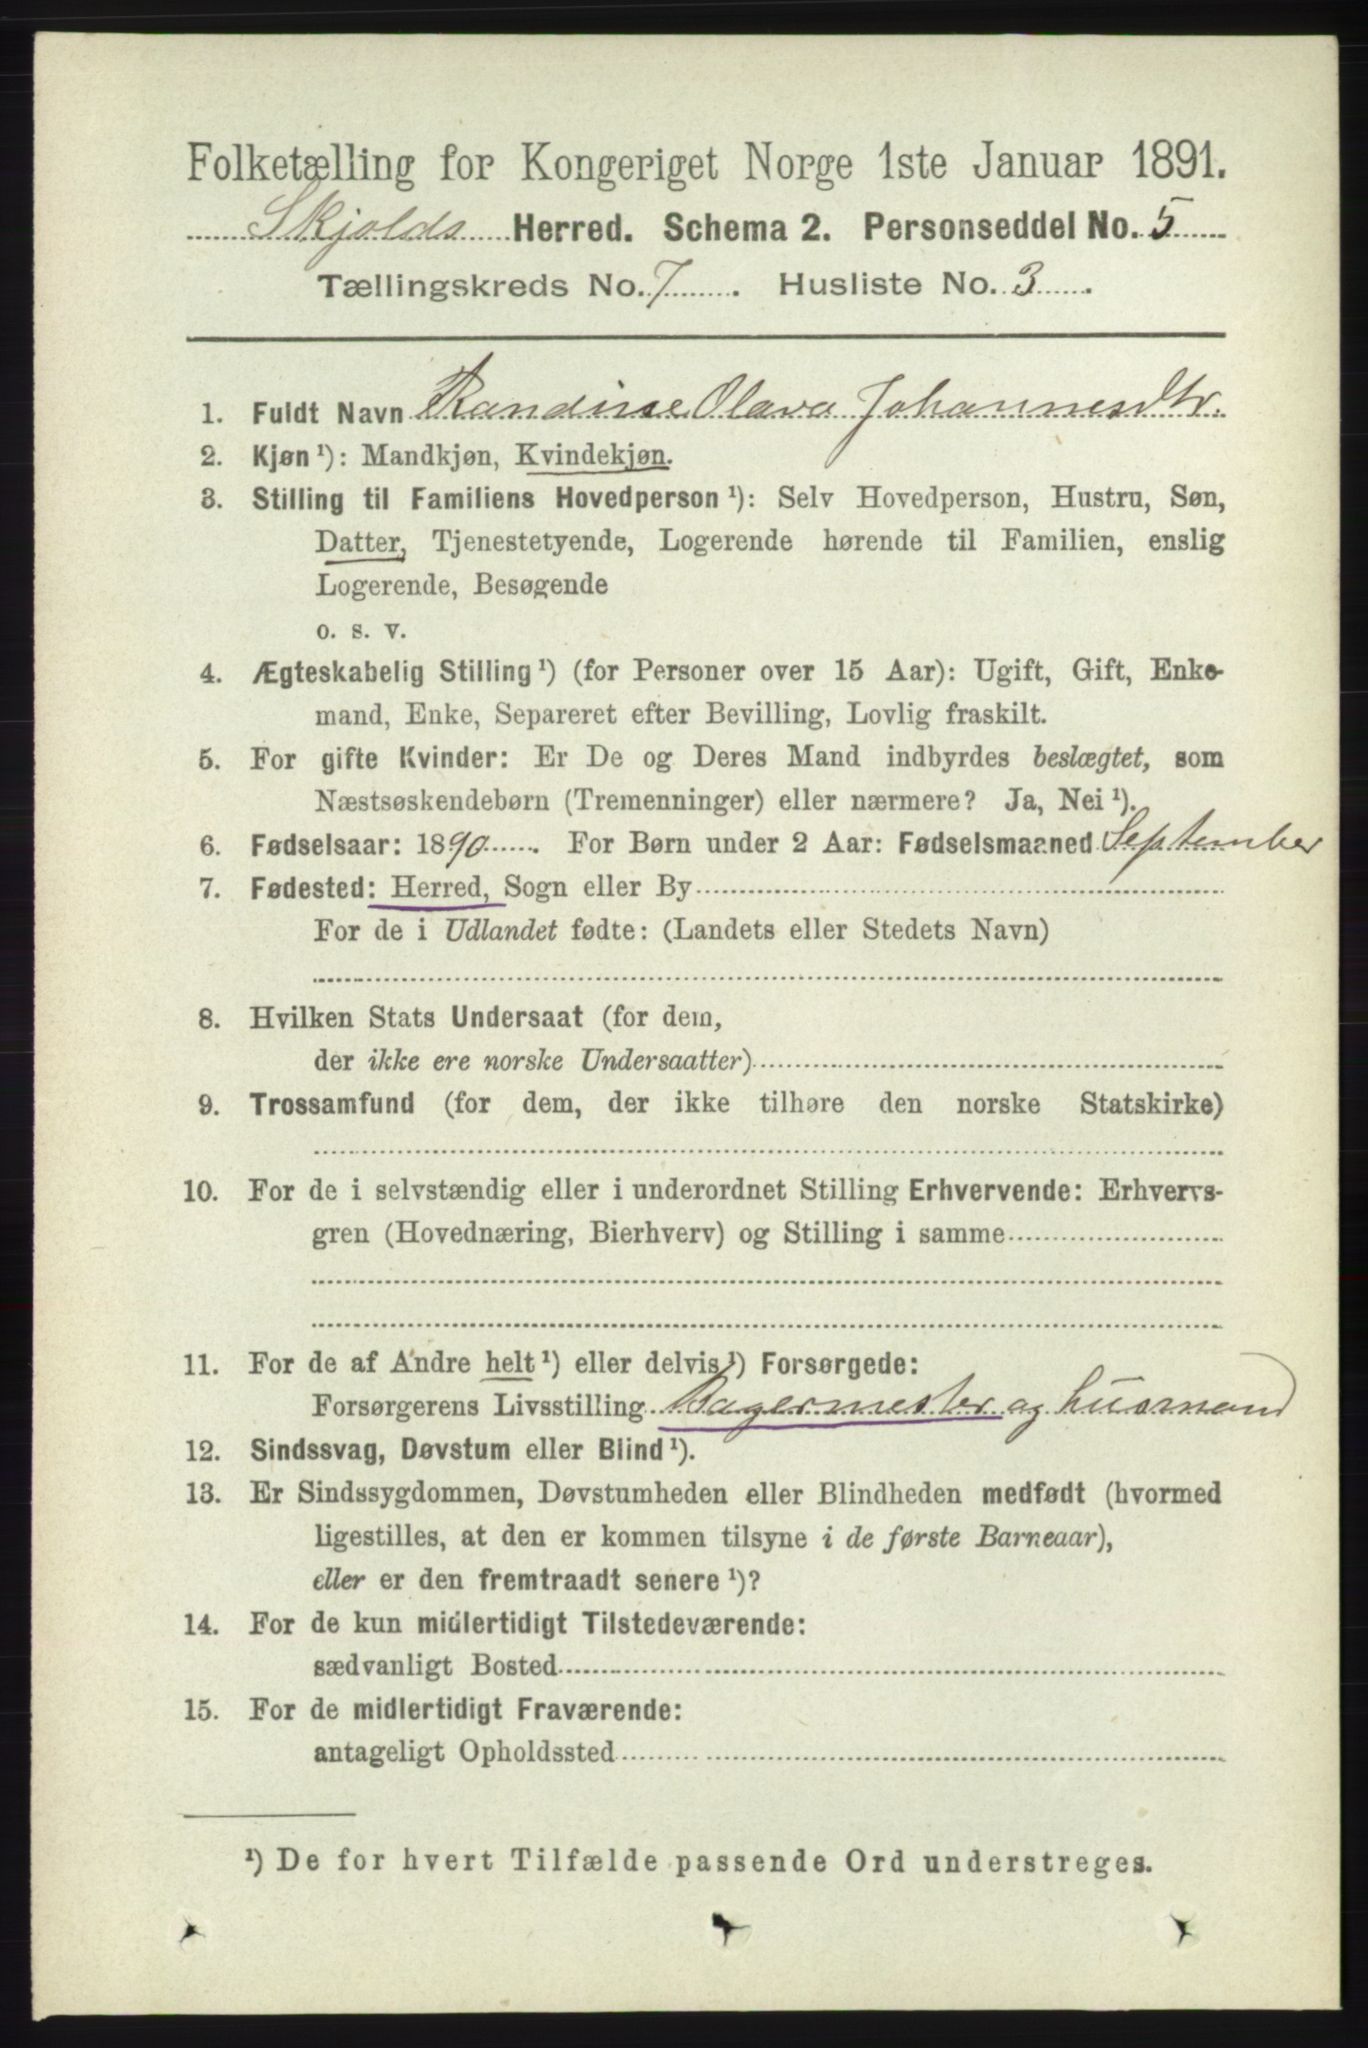 Folketælling for Kongeriget Norge 1ste Januar 1891.
Skjolds Herred. Schema 2. Personseddel No. 5
Tællingskreds No. 7. Husliste No. 3.
1. Fuldt Navn Randine Olava Johannesdtr.
2. Kjøn ¹): Mandkjøn, Kvindekjøn.
3. Stilling til Familiens Hovedperson ¹): Selv Hovedperson, Hustru, Søn,
Datter, Tjenestetyende, Logerende hørende til Familien, enslig
Logerende, Besøgende
o. s. v.
4. Ægteskabelig Stilling ¹) (for Personer over 15 Aar): Ugift, Gift, Enke-
mand, Enke, Separeret efter Bevilling, Lovlig fraskilt.
5. For gifte Kvinder: Er De og Deres Mand indbyrdes beslægtet, som
Næstsøskendebørn (Tremenninger) eller nærmere? Ja, Nei ¹).
6. Fødselsaar: 1890. For Børn under 2 Aar: Fødselsmaaned September
7. Fødested: Herred, Sogn eller By
For de i Udlandet fødte: (Landets eller Stedets Navn)
8. Hvilken Stats Undersaat (for dem,
der ikke ere norske Undersaatter)
9. Trossamfund (for dem, der ikke tilhøre den norske Statskirke)
10. For de i selvstændig eller i underordnet Stilling Erhvervende: Erhvervs-
gren (Hovednæring, Bierhverv) og Stilling i samme
11. For de af Andre helt ¹) eller delvis ¹) Forsørgede:
Forsørgerens Livsstilling Bagermester og husmand
12. Sindssvag, Døvstum eller Blind ¹).
13. Er Sindssygdommen, Døvstumheden eller Blindheden medfødt (hvormed
ligestilles, at den er kommen tilsyne i de første Barneaar),
eller er den fremtraadt senere ¹)?
14. For de kun midlertidigt Tilstedeværende:
sædvanligt Bosted
15. For de midlertidigt Fraværende:
antageligt Opholdssted
¹) De for hvert Tilfælde passende Ord understreges.